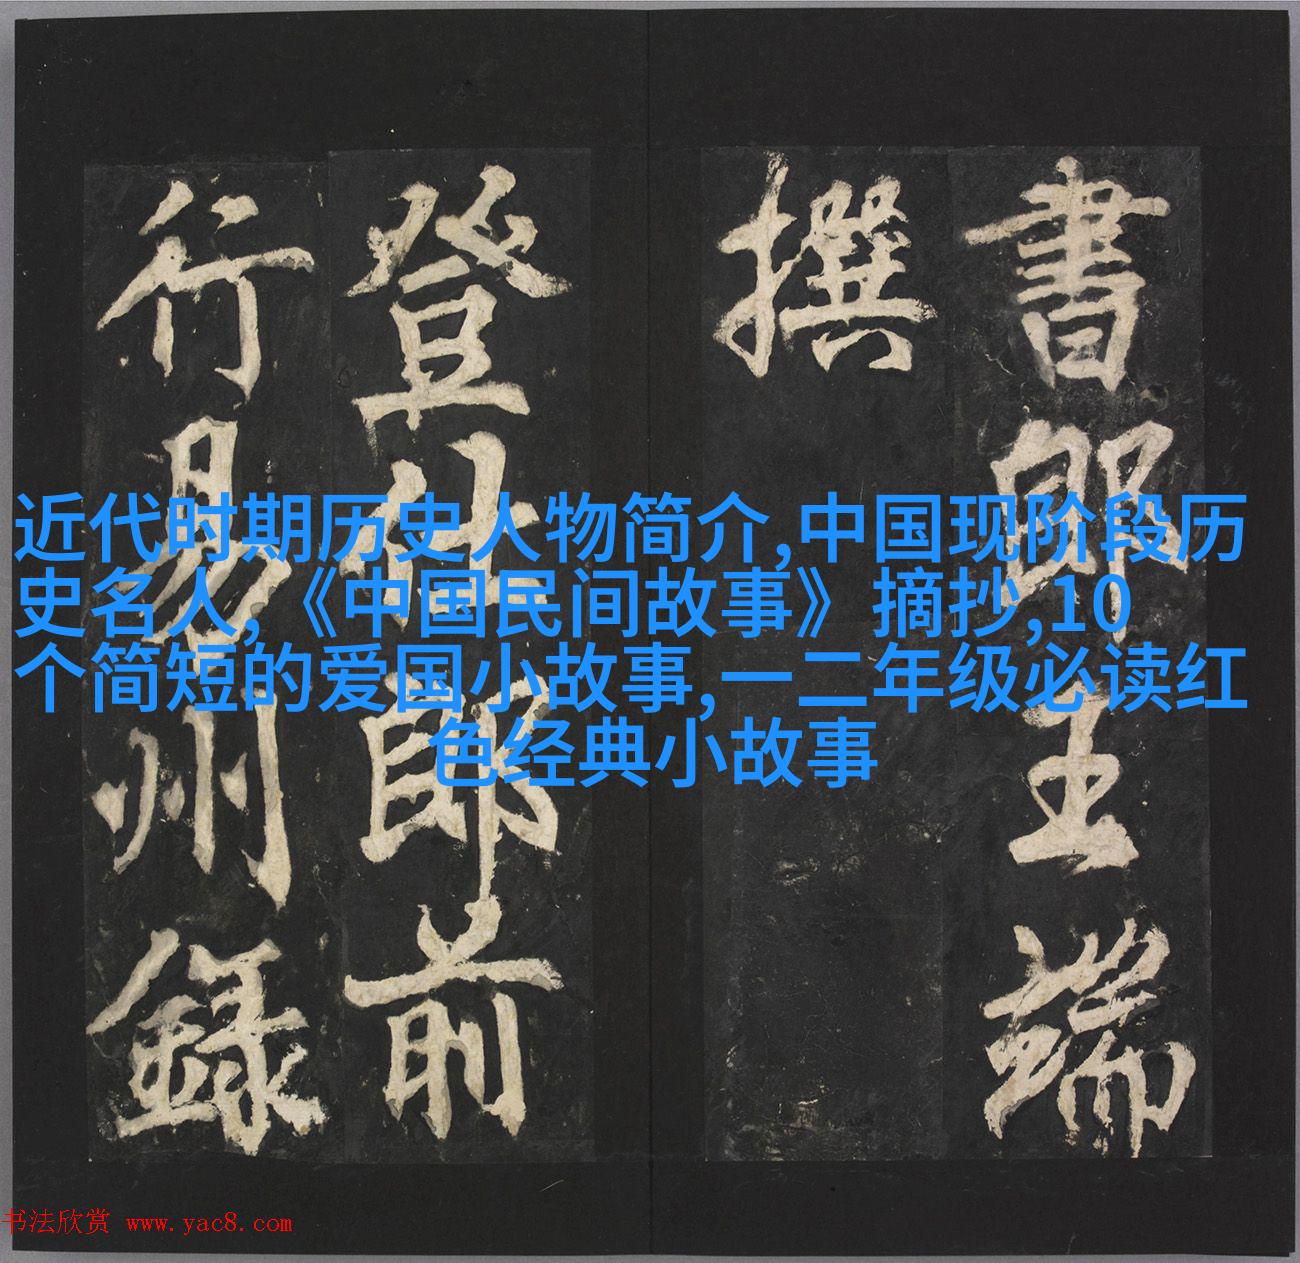 書郎王端
撰
登仕郎前
行易州録
近代时期历史人物简介,中国现阶段历
史名人,《中国民间故事》摘抄,10
个简短的爱国小故事,一二年级必读红
色经典小故事
书法欣赏 www.yac8.com